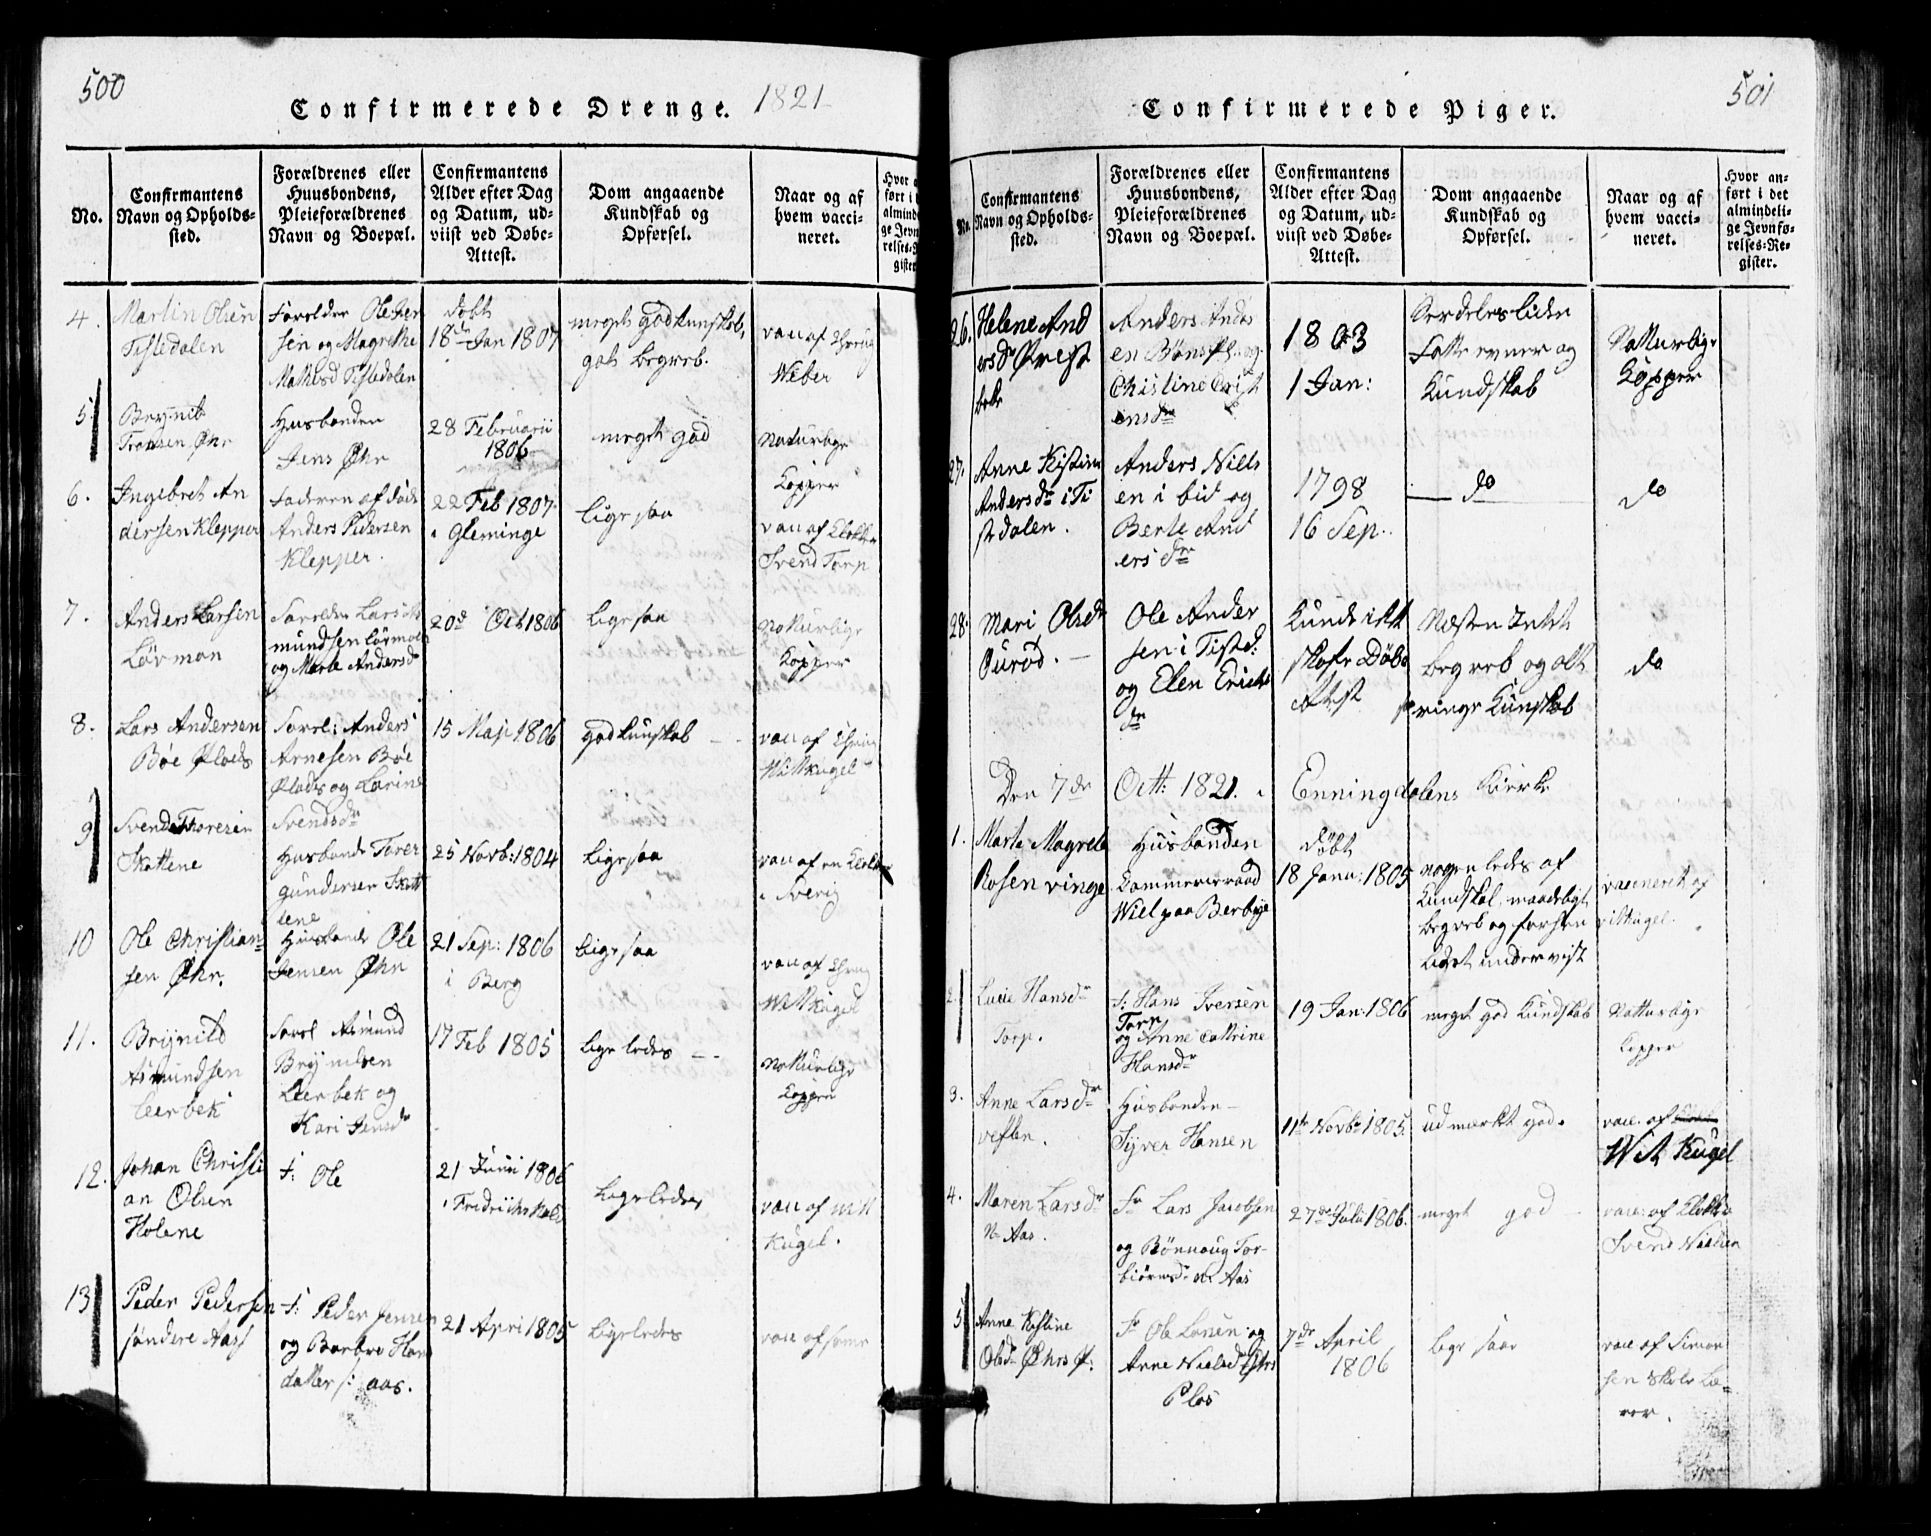 500
Confirmerede Drenge. 1821
No.
Confirmantens
Navn og Opholds-
sted.
Forældrenes eller
Huusbondens,
Pleieforældrenes
Navn og Boepæl.
Confirmantens
Alder efter Dag
og Datum, ud-
viist ved Døbe-
Attest.
Dom angaaende
Kundskab og
Opførsel.
Naar og af
hvem vacci-
neret.
4.
Martin Olsen
Tistedalen
Forelder Ole Iver
sen og Magrethe
Mathisd Tistedalen
døbt
18de Jan 1807
meget god Kunskab,
got begreb.
vac af
Weber
5.
Brynild
Øhr
Husbonden
Jens Øhr
28 Februarii
1806
meget god
Naturlige
Kopper
6.
Ingebret An
dersen Klepper
Faderen af døde
Anders Pedersen
Klepper.
22 Feb 1807.
i Gleminge
lige saa
vac af Klokker
Svend Torp
7.
Anders Larsen
Løvman
Forelder Lars As
mundsen Lövman
og Marte Andersd
20de Oct 1806
lige saa
Natturlige
Kopper
8.
Lars Andersen
Böe Plads
Forel: Anders
Arnesen Böe
Plads og Karine
Svendsdr
15 Maji 1806
god Kunskab
vac af
Wittkugel
9
Svend Thoresen
Skottene
Husbonde Tover
gundersen Skot
tene
25 Novb: 1804
lige saa
vac af en Klokker
i Sverig
10
Ole Christian-
sen Øhr.
Husbonde Ole
Jensen Øhr
21 Sep: 1806
i Berg
lige saa
vac af
Wittkugel
11.
Brynild
Asmundsen
Leerbek
Forel Asmund
Brynildsen
Leerbek og
Kari Jensdr
17 Feb 1805
lige ledes
Natturlige
Kopper
12.
Johan Christi
an Olsen
Holene
F: Ole
21 Juni 1806
i Fredrichshald
Ligeledes
vac af Witt
Kugel.
13
Peder Pedersen
söndere Aas
F: Peder Jensen
og Barbro Han
datter s: aas.
21 Apri 1805
Ligeledes
vac af samme
501
Confirmerede Piger.
No.
Confirmantens
Navn og Opholds-
sted.
Forældrenes eller
Huusbondens,
Pleieforældrenes
Navn og Boepæl.
Confirmantens
Alder efter Dag
og Datum, ud-
viist ved Døbe-
Attest.
Dom angaaende
Kundskab og
Opførsel.
Naar og af
hvem vacci-
neret.
Hvor an-
ført i det
almindeli-
ge Jevnfø-
relses-Re-
gister.
26.
Helene And
ersdr Prest
bek
Anders Anders
en og
Christine Crist
ensdr
1803
1 Jan:
Serdeles liden
Fatte evner og
Kundskab
Natturlige
Kopper
27.
Anne Kistine
Andersdr i Ti
stedalen.
Anders Niels
en i bid og
Berte And
ersdr
1798
16 Sep.
do
do
28.
Mari Olsdr
Ole Ander
sen i Tisted:
og Elen Erichs
dr
Kunde ikke
skaffe Døbe
Attest
Næsten Intet
begreb og alt
ringe Kunskab
do
Den 7de Oct: 1821. i Enningdalens Kierke
1.
Marte Magrete
Rosenvinge
Husbonden
Cammerraad
Wiel paa Berbye
döbt
18 Janu: 1805
nogenledes af
Kundskab, maadeligt
begreb og forsten
ledet undervist
vaccineret af
Wittugel.
2.
Lucie Hansdr
Torp.
F: Hans Iversen
Torp
og Anne Cathrine
Hansdr
19 Jan: 1806
meget god Kundskab
Natturlige
Kopper
3.
Anne Larsdr
Husbonden
Syver Hansen
11te Novbr 1805.
udmerket god.
vac. af
Witt Kugel
4.
Maren Larsdr
N. Aas.
Fr Lars Jacobsen
og Rönnoug Tor-
biörnsdr N. Aas
27de Juli 1806.
meget god
vac: af Klokker
Svend Nielsen
5
Anne Kistine
Olsdr Øhrs P:
Fr Ole Larsen og
Anne Nielsd Øhrs
Plds
7de April
1806
lige saa
vac af Simon
sen Skole Læ-
rer.